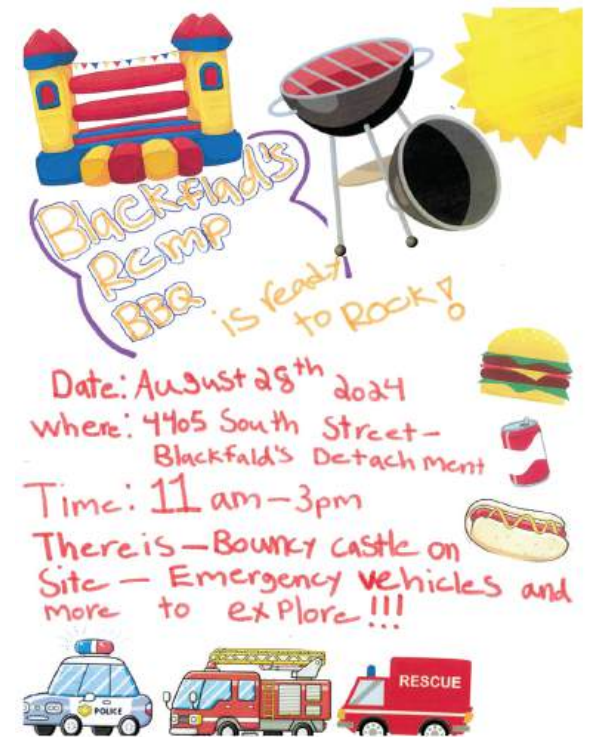 Blackflad's
Rcmp
BBQ
is ready
to Rock!
Date: August 28th 2024
where: 4405 South Street-
Blackfald's Detachment
Time: 11 am-3pm
There is-Bouncy castle on
Site - Emergency vehicles and
more to explore!!!
POLICE
RESCUE